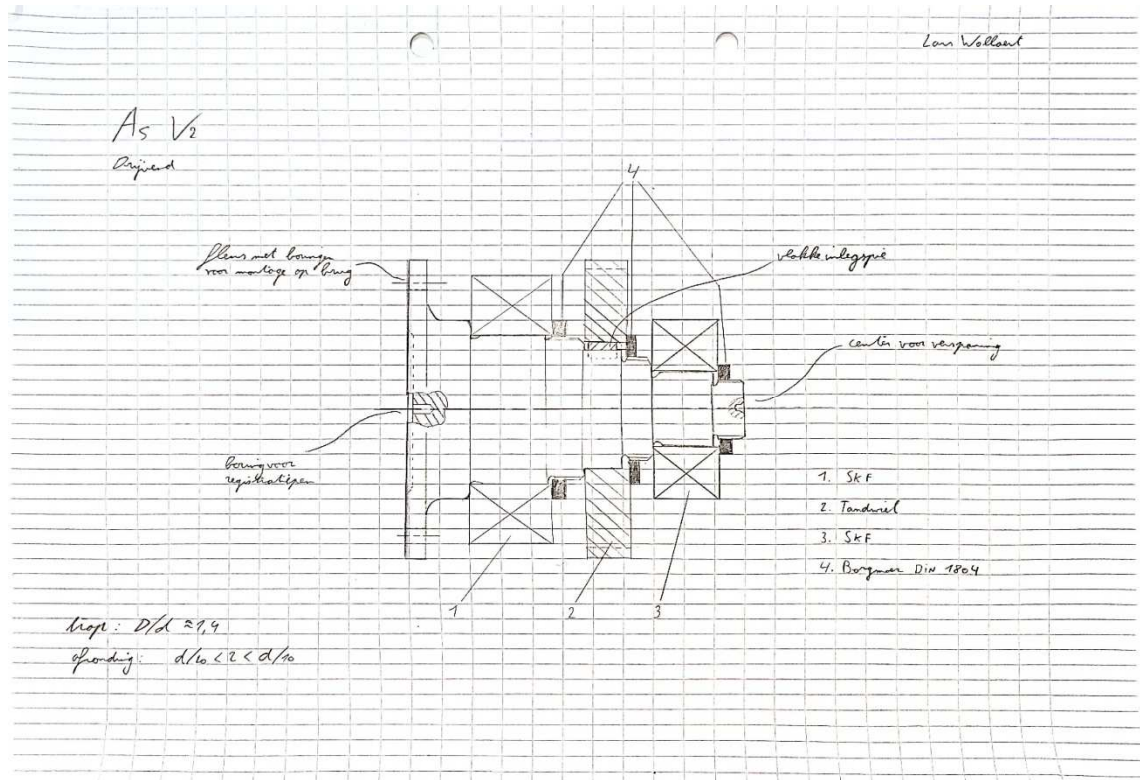 Lars Wollaert
As V2
Drijvend
4
flens met boringen
voor montage op brug
vlakke inlegspie
center voor verspaning
boring voor
registratiepen
1. SKF
2. Tandwiel
3. SKF
4. Borgmoer DIN 1804
1
2
3
trap: D/d ≈ 1,4
afronding: d/20 < r < d/10